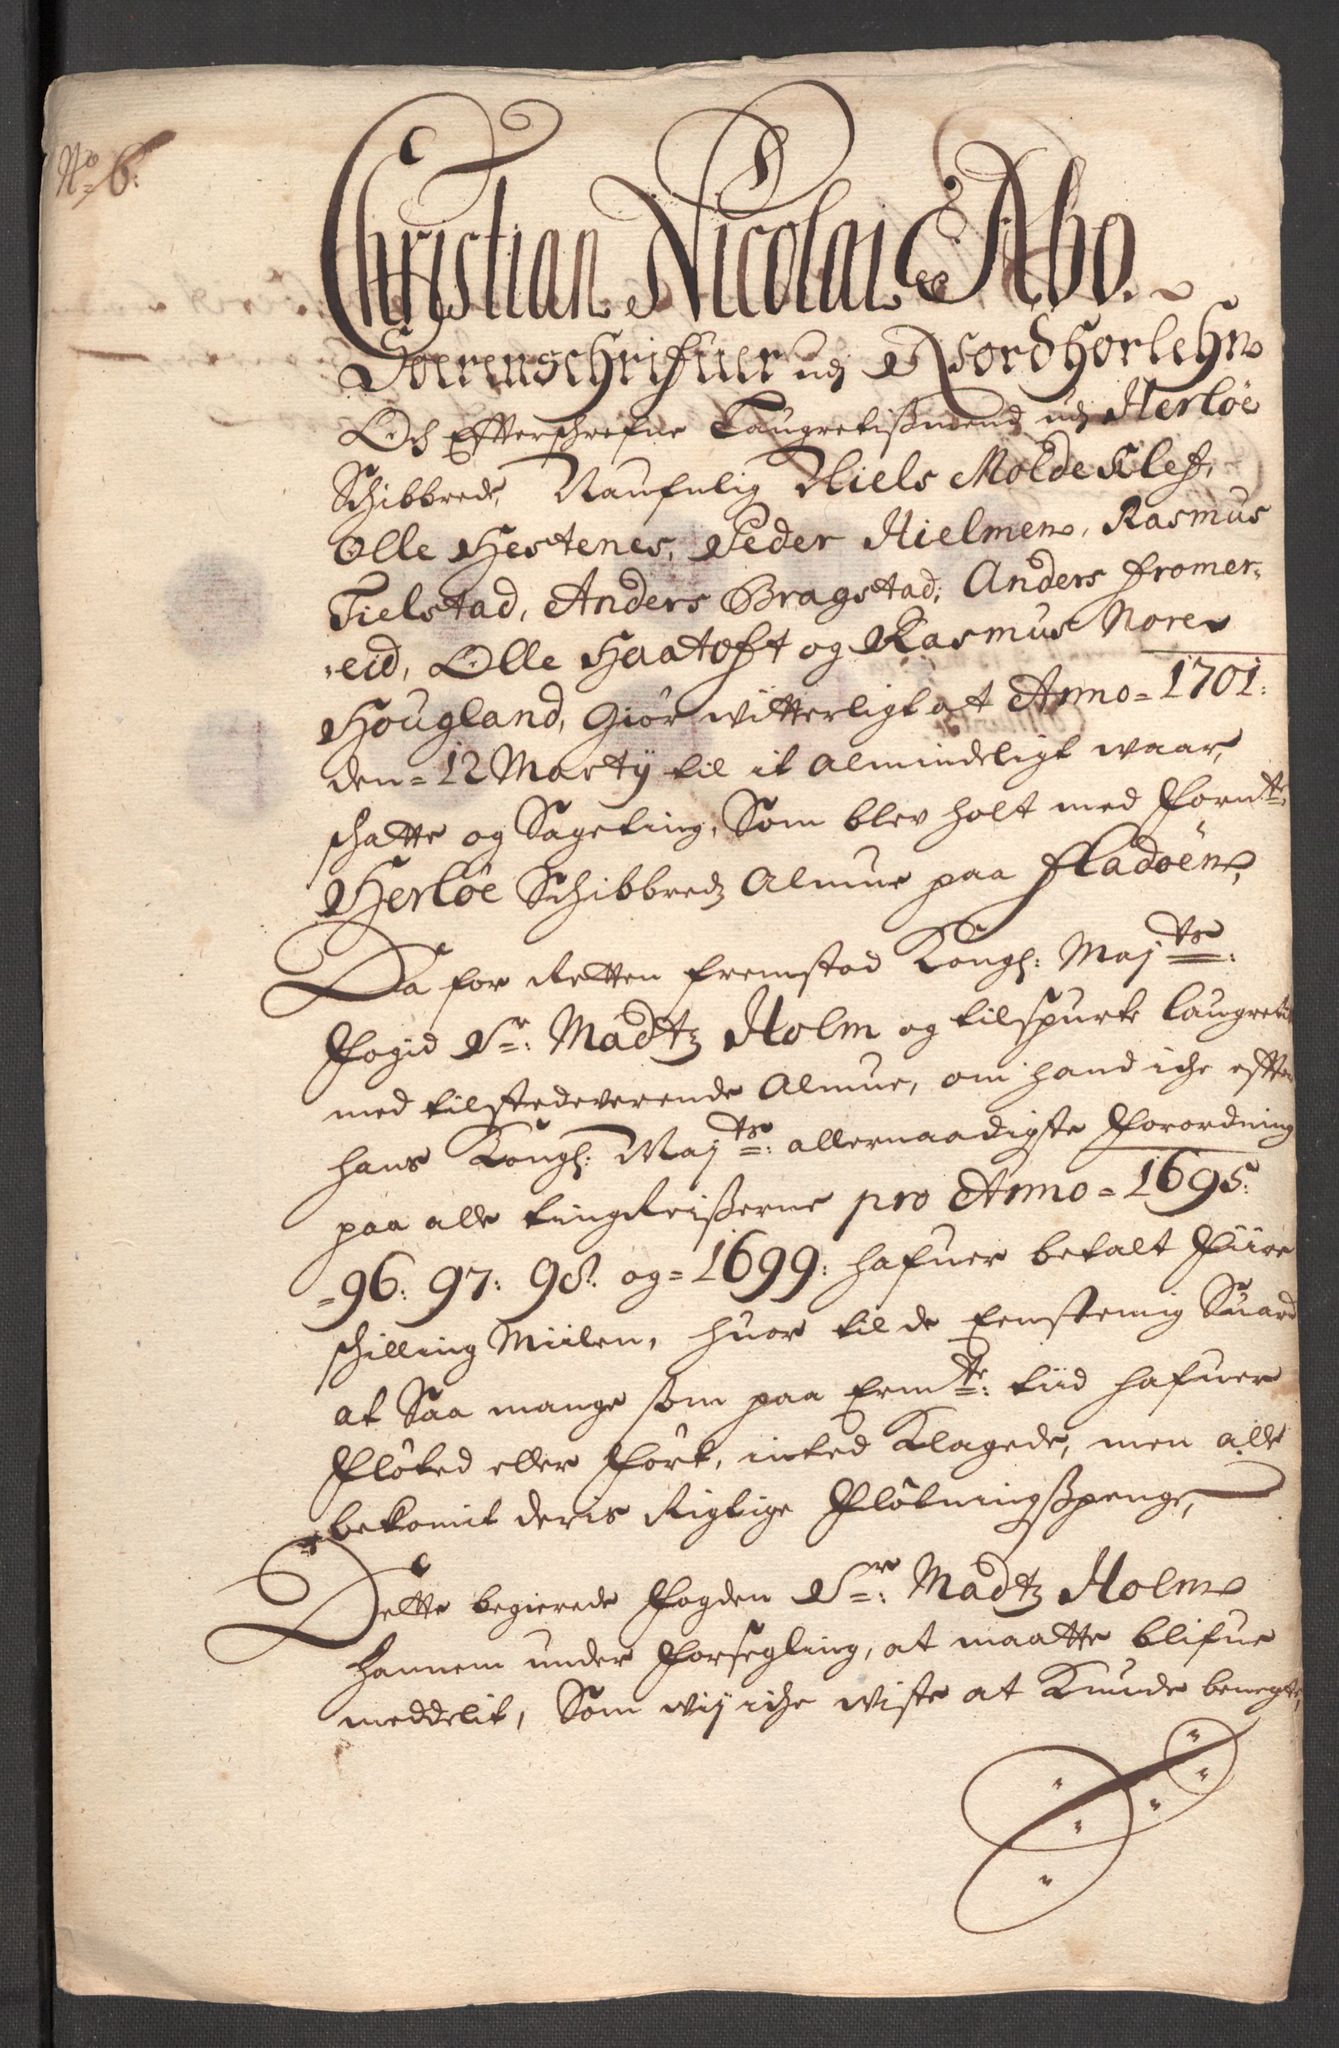 No 6:
Christian Nicolai Abo.
Sorenschrifuer udj Nordhorlehn
Och Effterschrefne Laugrettißmend udj Herlöe
Schibbrede, Naufnlig Niels Molde Klef,
Olle Hestenes, Peder Hielmen, Rasmus
Tielstad, Anders Bragstad, Anders Fromer-
eid, Olle Haatoft og Rasmus Nore
Hougland, Giör witterligt at Anno = 1701:
den = 12 Marty til it almindeligt waar,
schatte og Sageting, Som blev holt med Forn.te
Herlöe Schibbredz Almue paa Fladöen,
Da for Retten fremstod Kongl: Maj.ts:
Fogid Sr: Madtz Holm og tilspurte Laugrettet
med tilstedeverende Almue, om hand iche efter
hans Kongl: Maj.ts: allernaadigste Forordning
paa alle tingReißerne pro Anno = 1695:
= 96: 97: 98: og = 1699: hafuer betalt Fiire
schilling Miilen, huor til de Eenstemig Suared
at Saa mange som paa Erm.te: tiid hafuer
Flöted eller Fört, inted Klagede, men alle
bekomit deris Rigtige Flötningsspenge,
Dette begierede Fogden Sr: Madtz Holm
hannem under Forsegling, at maatte blifue
meddelit, Som wij iche wiste at Kunde benegte,